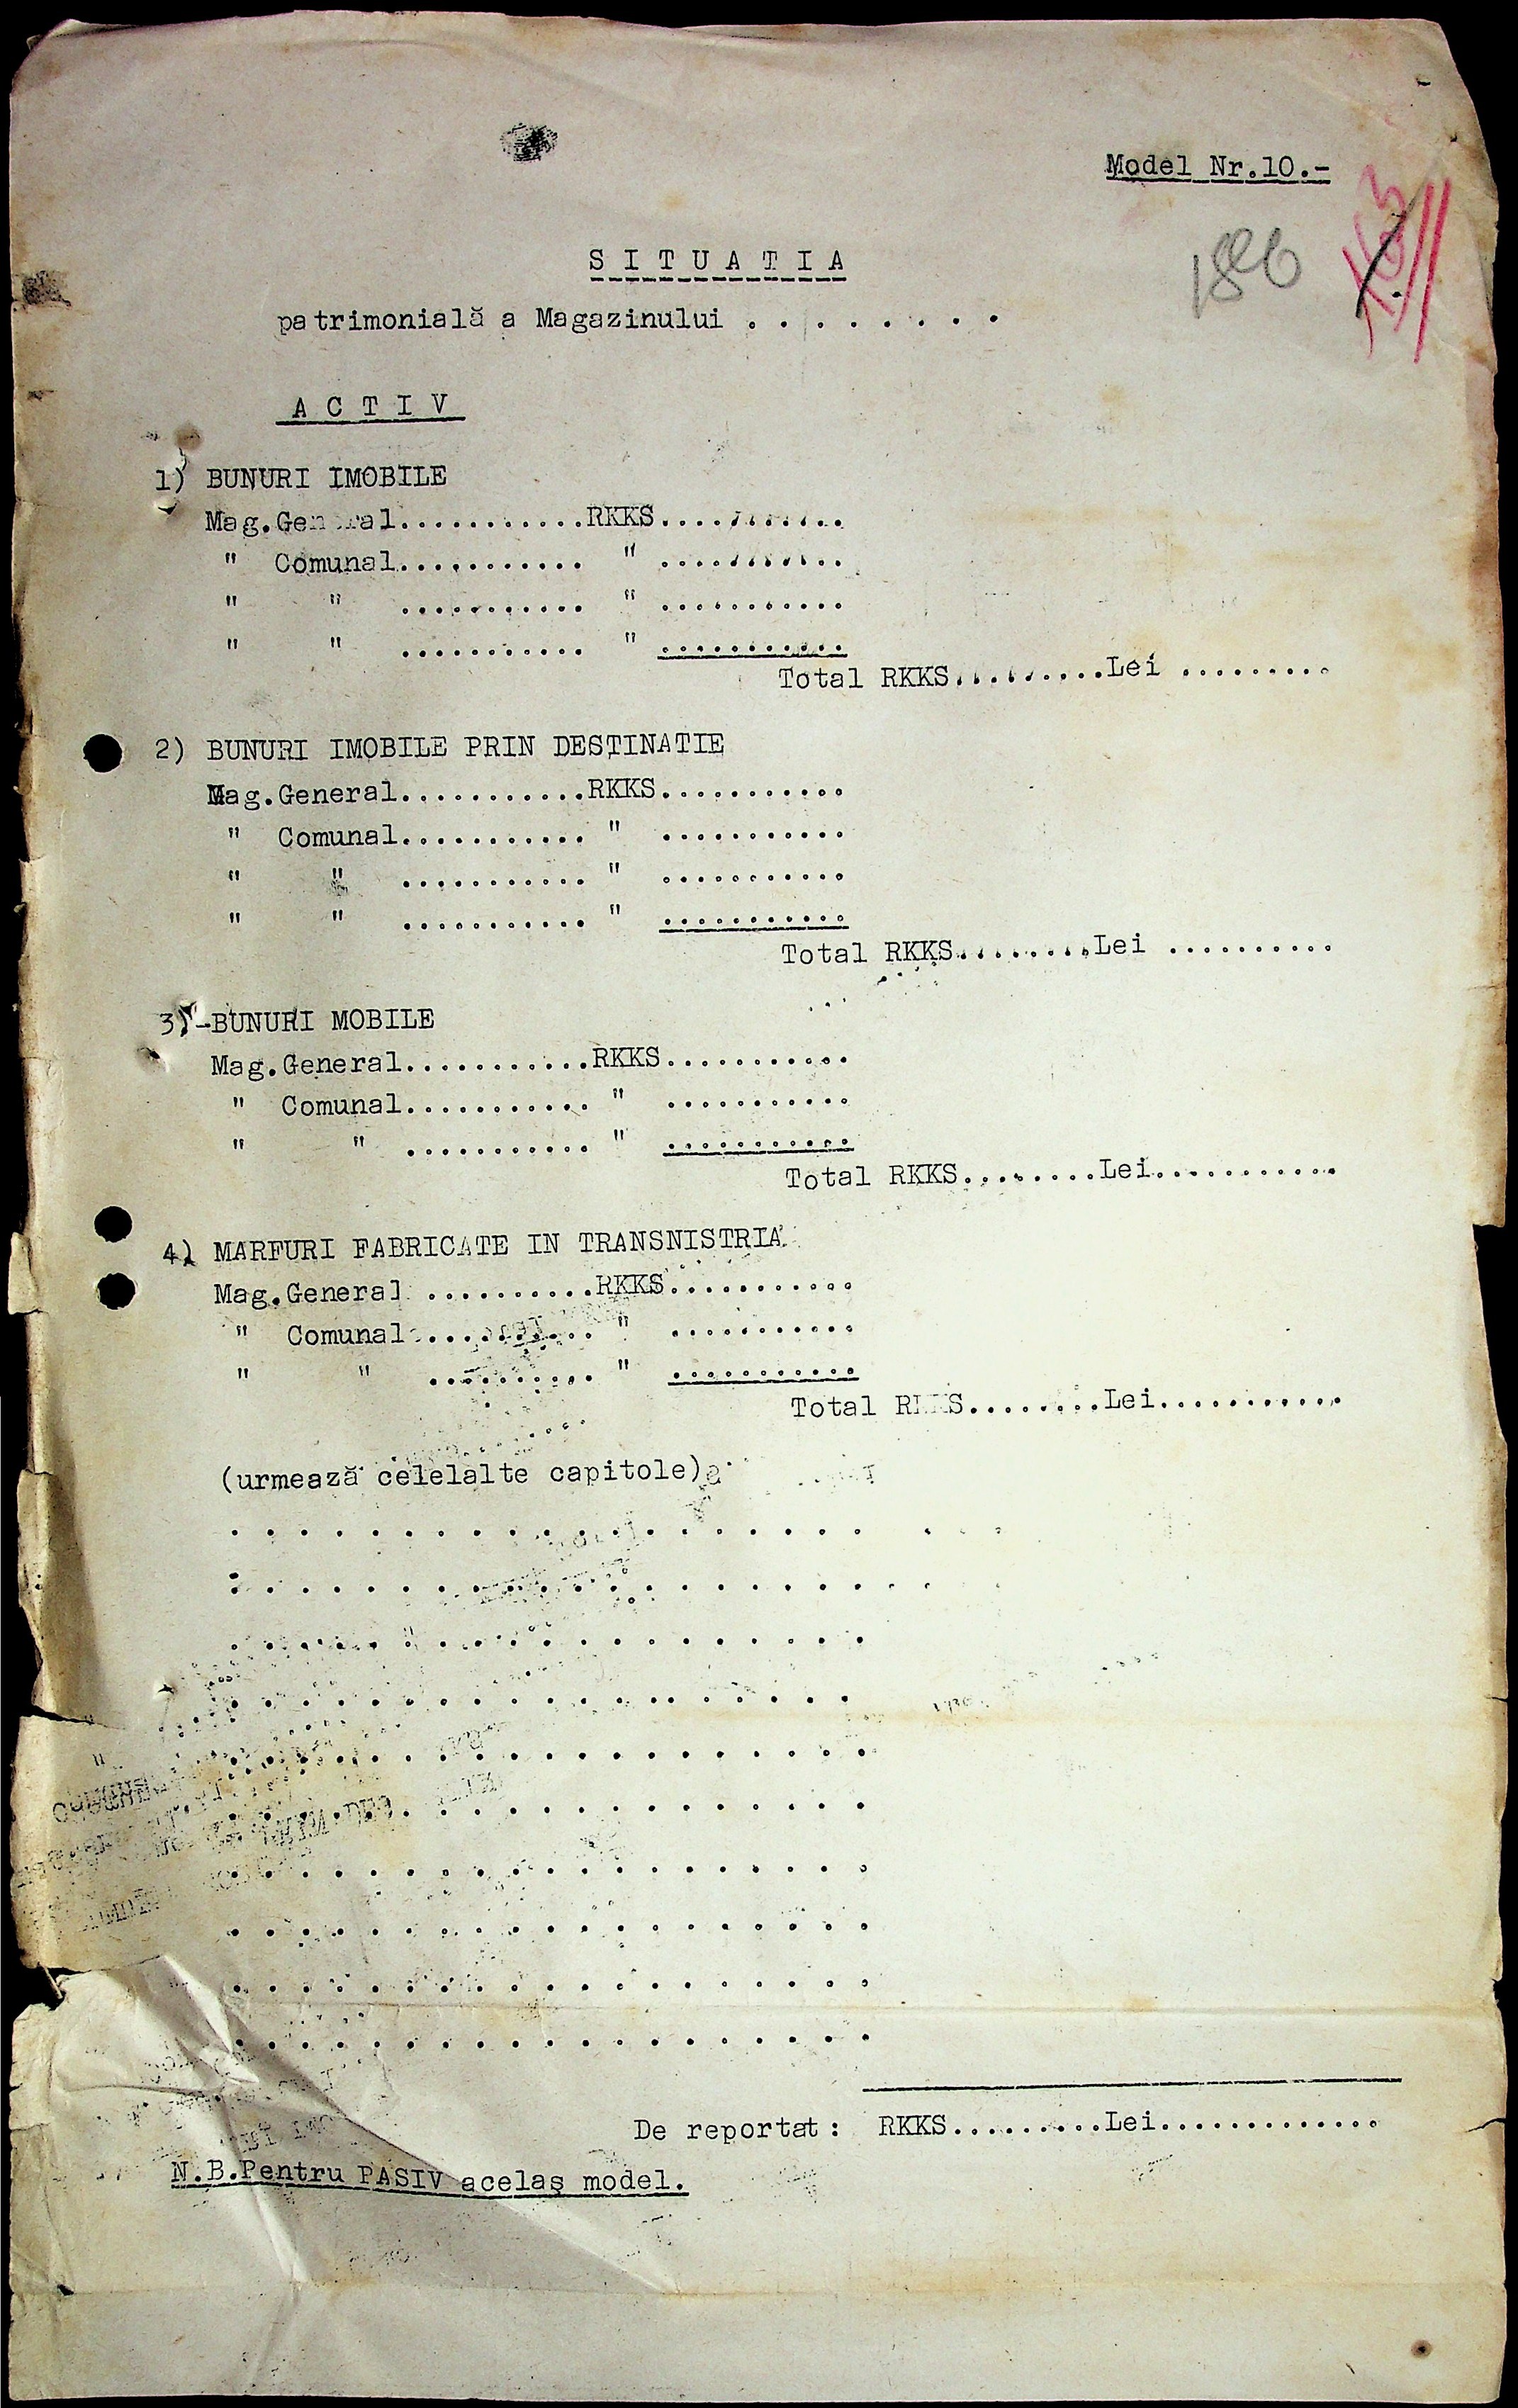 Model Nr.10.-
186
S I T U A T I A
patrimonială a Magazinului . . . . . . . .
A C T I V
1) BUNURI IMOBILE
Mag.General...........RKKS...........
" Comunal........... " ...........
" " ........... " ...........
" " ........... " ...........
Total RKKS.........Lei .........
2) BUNURI IMOBILE PRIN DESTINATIE
Mag.General...........RKKS...........
" Comunal........... " ...........
" " ........... " ...........
" " ........... " ...........
Total RKKS........Lei ..........
3)-BUNURI MOBILE
Mag.General...........RKKS...........
" Comunal........... " ...........
" " ........... " ...........
Total RKKS........Lei...........
4) MARFURI FABRICATE IN TRANSNISTRIA
Mag.General ..........RKKS...........
" Comunal .......... " ...........
" " .......... " ...........
Total RKKS........Lei...........
(urmează celelalte capitole)
. . . . . . . . . . . . . . . . . . .
. . . . . . . . . . . . . . . . . . .
. . . . . . . . . . . . . . . . . . .
. . . . . . . . . . . . . . . . . . .
. . . . . . . . . . . . . . . . . . .
. . . . . . . . . . . . . . . . . . .
. . . . . . . . . . . . . . . . . . .
. . . . . . . . . . . . . . . . . . .
. . . . . . . . . . . . . . . . . . .
. . . . . . . . . . . . . . . . . . .
De reportat: RKKS.........Lei.............
N.B.Pentru PASIV acelaş model.